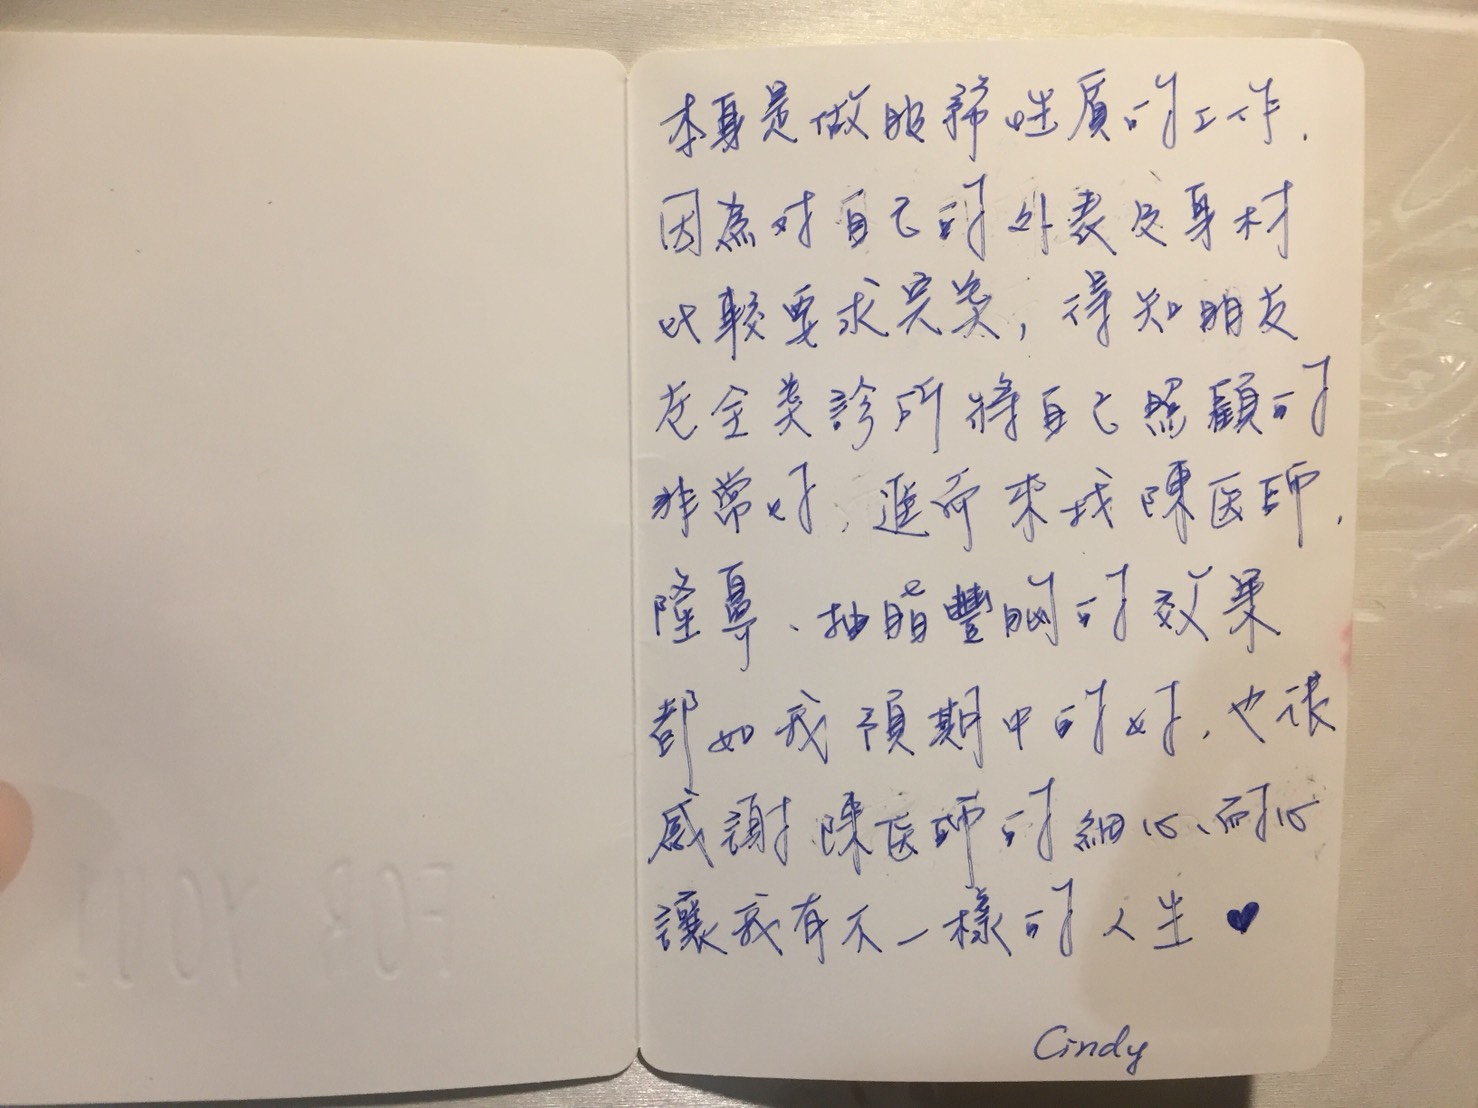 本身是做服務性質的工作.
因為对自己的外表及身材
比較要求完美，得知朋友
在全美診所將自己照顧的
非常好，進而來找陳医師，
隆鼻、抽脂豐胸的效果
都如我預期中的好，也很
感謝陳医師的細心、耐心
讓我有不一樣的人生♥
Cindy
FOR YOU!